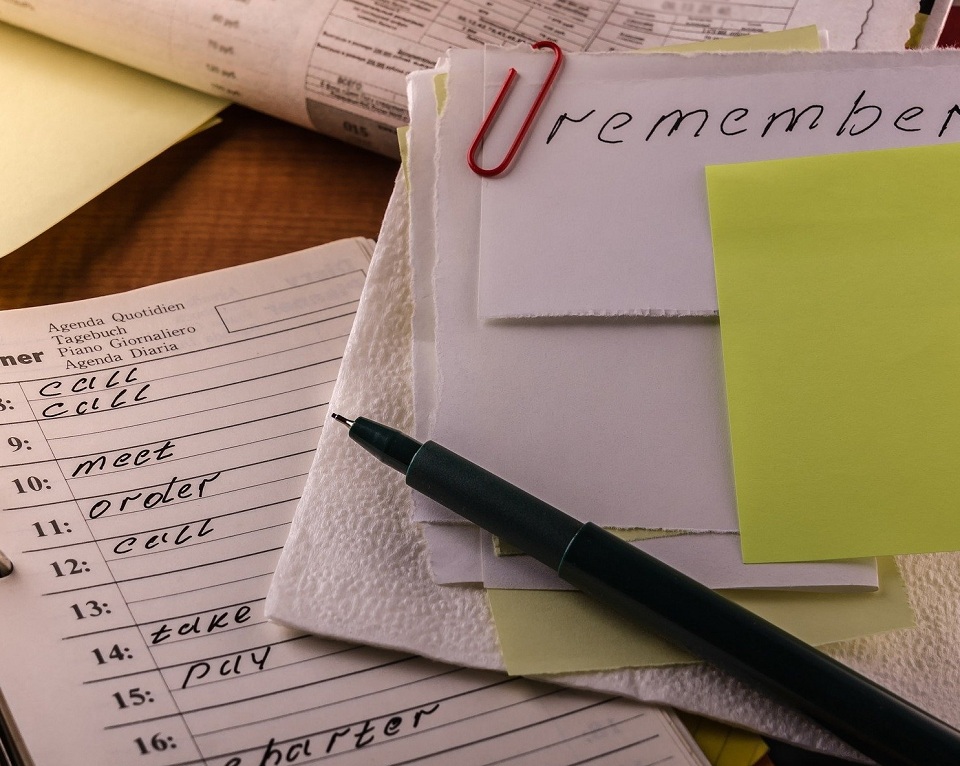 remember
Agenda Quotidien
Tagebuch
Piano Giornaliero
Agenda Diaria
ner
8: call
call
9:
10: meet
11: order
12: call
13:
14: take
15: pay
16: charter